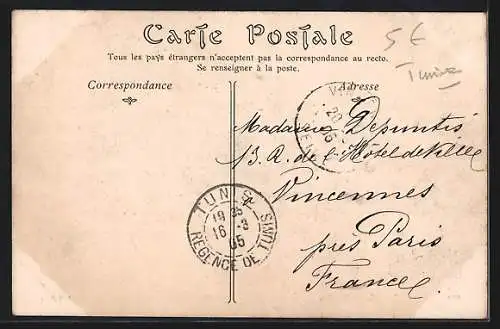 Carte Postale
Tous les pays étrangers n'acceptent pas la correspondance au recto.
Se renseigner à la poste.
Correspondance
Adresse
5€
Tunisie
Madame Depuntis
13. R. de l'Hôtel de Ville
Vincennes
près Paris
France
TUNIS
19 35
16 -3
05
REGENCE DE TUNIS
20